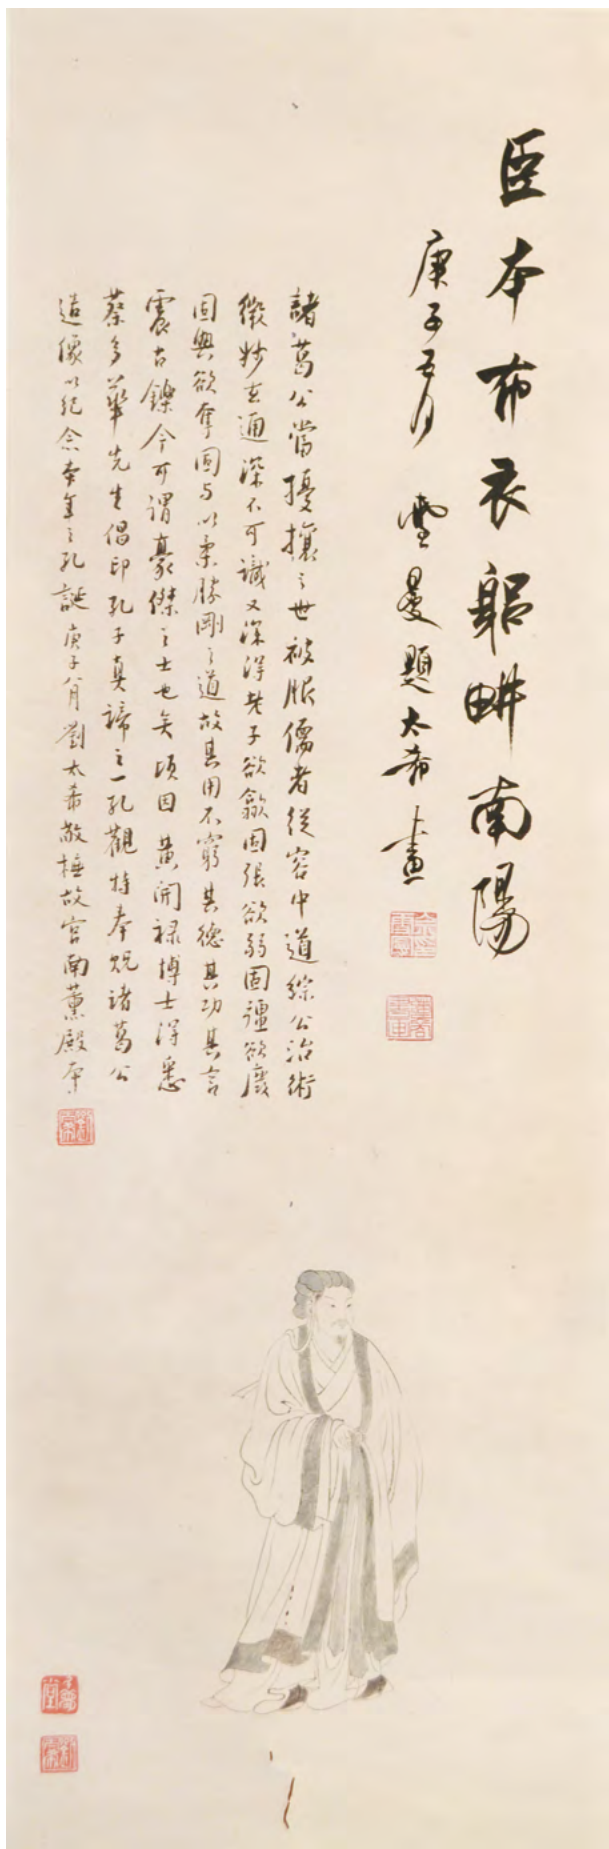 臣本布衣躬畊南陽
庚子五月 雲曼題太希畫
諸葛公當擾攘之世被服儒者從容中道綜公治術
微妙玄通深不可識又深得老子欲歙固張欲弱固彊欲廢
固興欲奪固与以柔勝剛之道故其用不窮其德其功其言
震古鑠今可謂豪傑之士也矣頃因黄開禄博士得悉
蔡多華先生倡印孔子真諦之一孔觀特奉貺諸葛公
造像以紀念本年之孔誕 庚子八月劉太希敬橅故宮南薰殿本